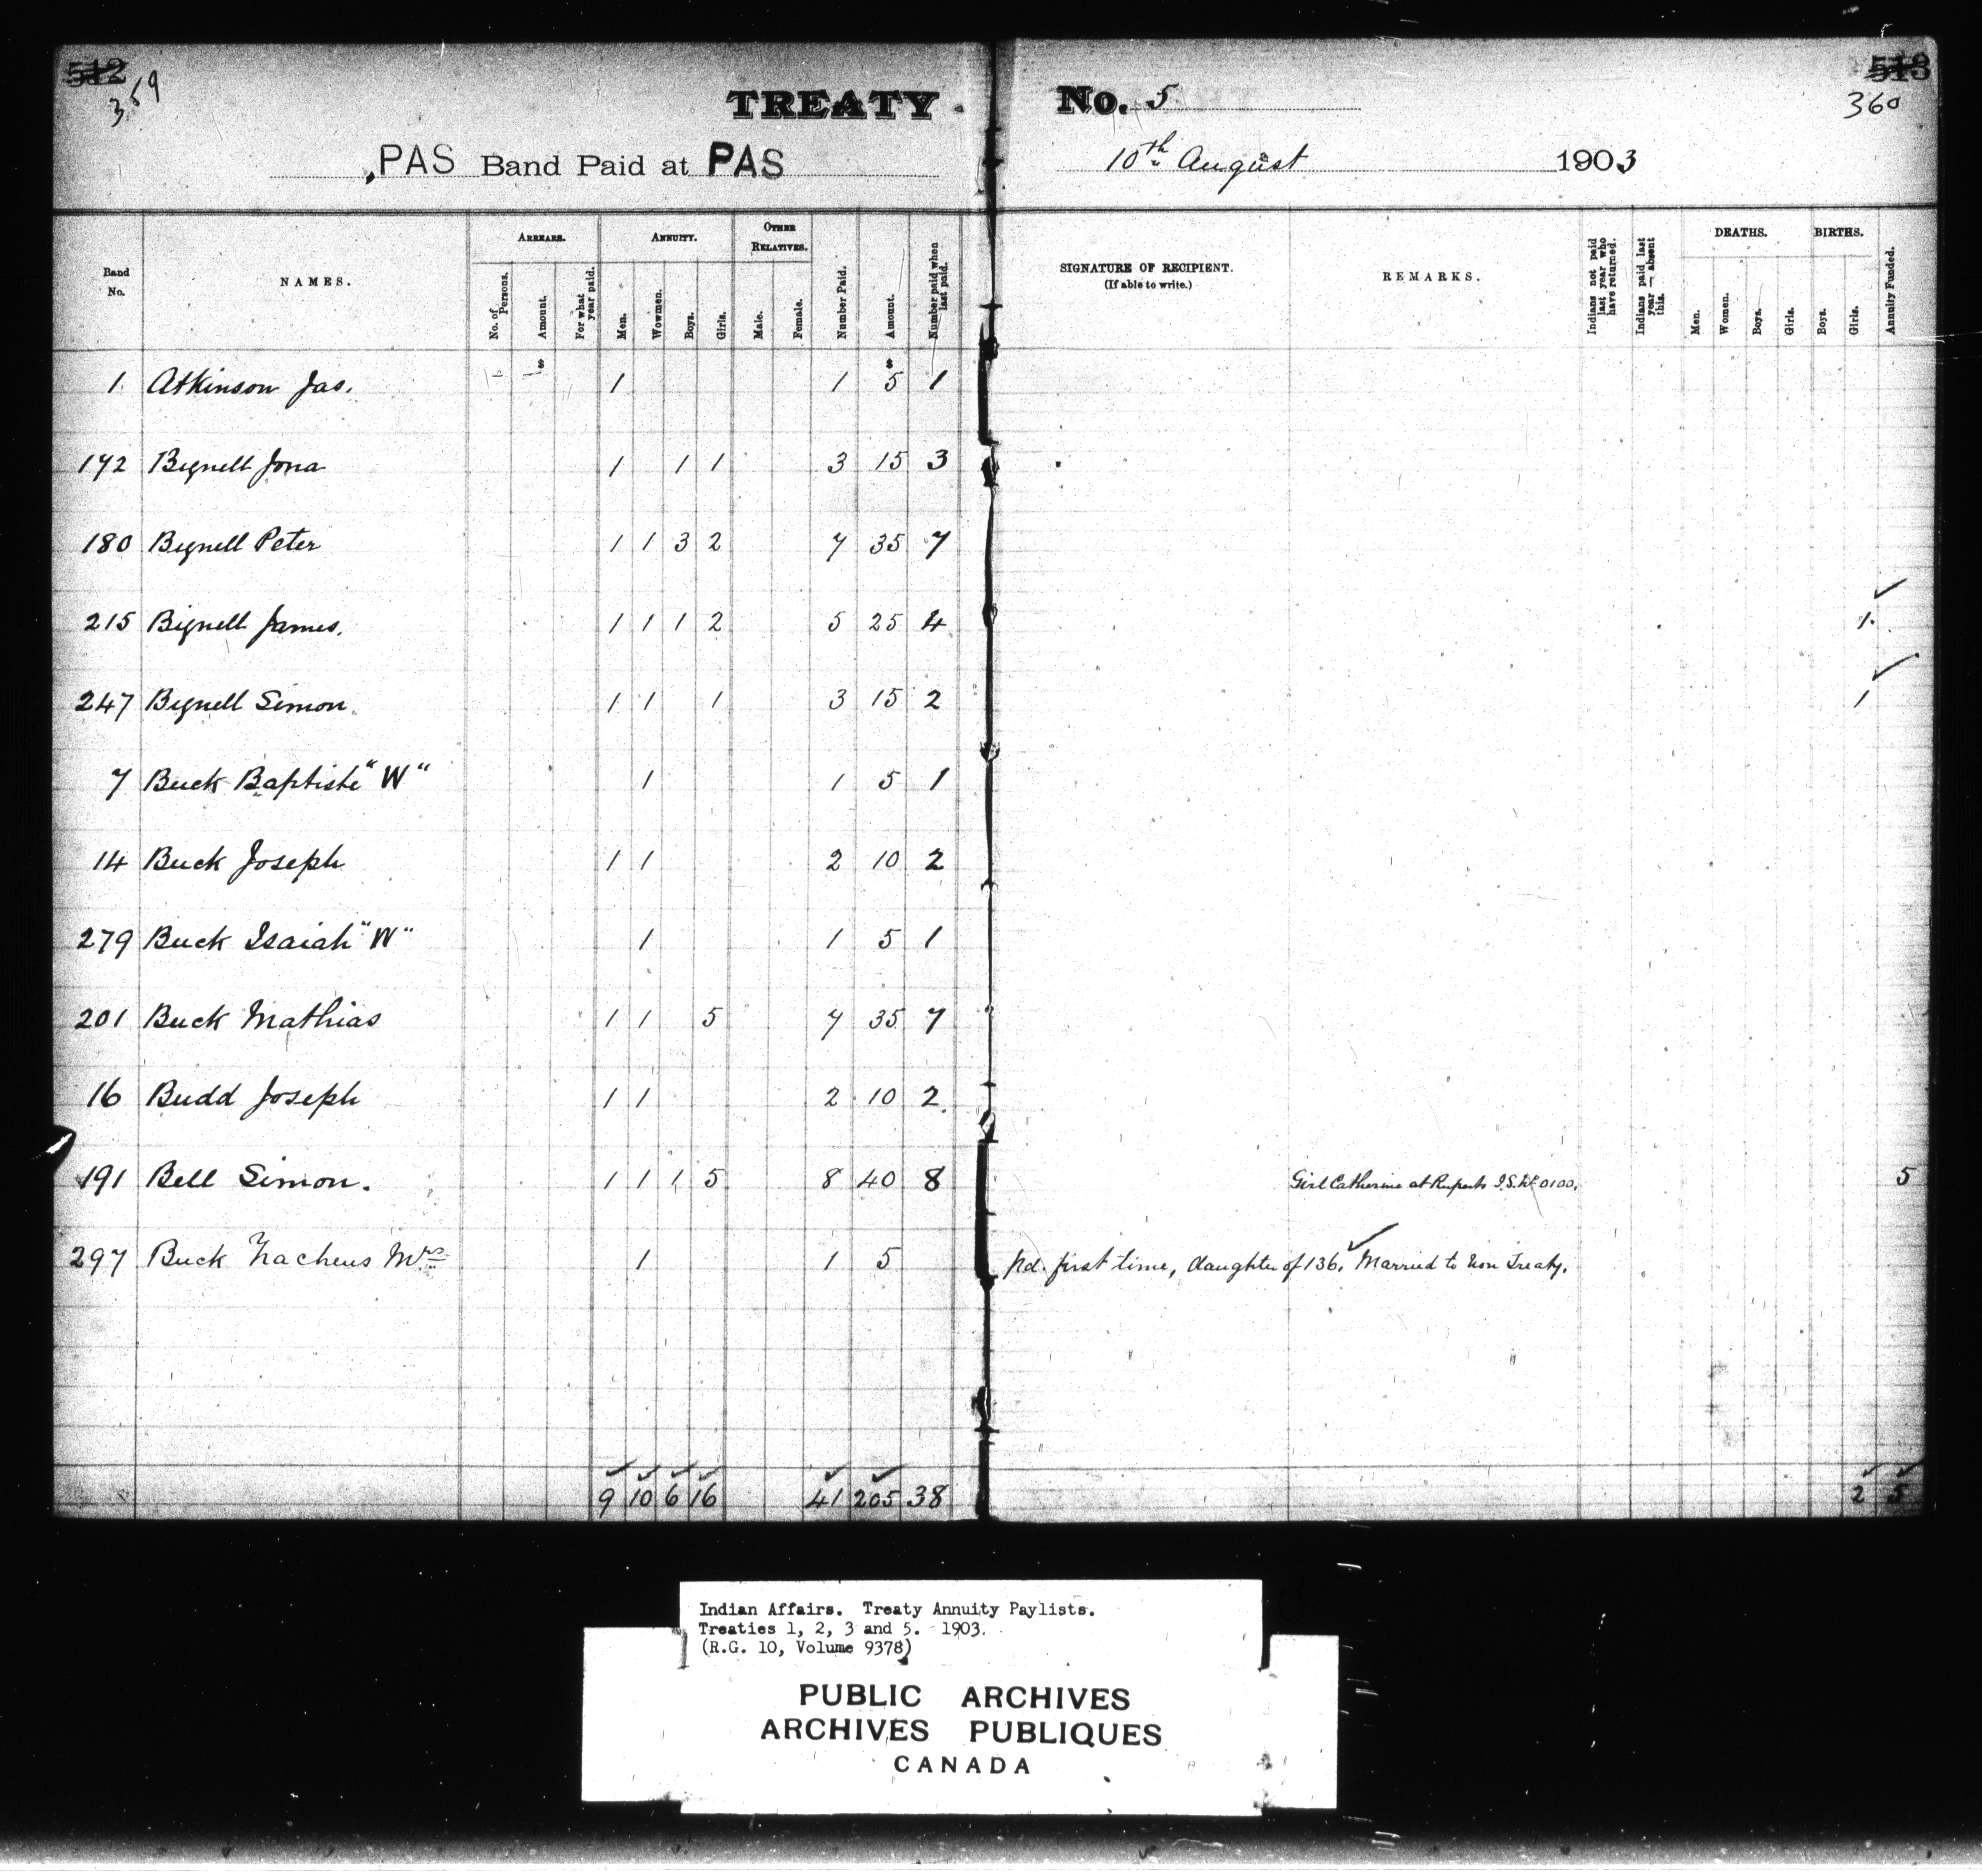 512
359
TREATY No. 5
513
360
PAS Band Paid at PAS 10th August 1903
Band No.
NAMES.
ARREARS.
No. of Persons.
Amount.
For what year paid.
ANNUITY.
Men.
Wowmen.
Boys.
Girls.
OTHER RELATIVES.
Male.
Female.
Number Paid.
Amount.
Number paid when last paid.
SIGNATURE OF RECIPIENT.
(If able to write.)
REMARKS.
Indians not paid last year who have returned.
Indians paid last year—absent this.
DEATHS.
Men.
Women.
Boys.
Girls.
BIRTHS.
Boys.
Girls.
Annuity Funded.
$ $
1 Atkinson Jas. 1 1 5 1
172 Bignell Jona 1 1 1 3 15 3
180 Bignell Peter 1 1 3 2 7 35 7
215 Bignell James. 1 1 1 2 5 25 4 1
247 Bignell Simon 1 1 1 3 15 2 1
7 Buck Baptiste "W" 1 1 5 1
14 Buck Joseph 1 1 2 10 2
279 Buck Isaiah "W" 1 1 5 1
201 Buck Mathias 1 1 5 7 35 7
16 Budd Joseph 1 1 2 10 2
191 Bell Simon. 1 1 1 5 8 40 8 Girl Catherine at Ruperts I.S. No 0100. 5
297 Buck Zacheus Mrs 1 1 5 pd. first time, daughter of 136. Married to Non Treaty.
9 10 6 16 41 205 38 2 5
Indian Affairs. Treaty Annuity Paylists.
Treaties 1, 2, 3 and 5. 1903.
(R.G. 10, Volume 9378)
PUBLIC ARCHIVES
ARCHIVES PUBLIQUES
CANADA